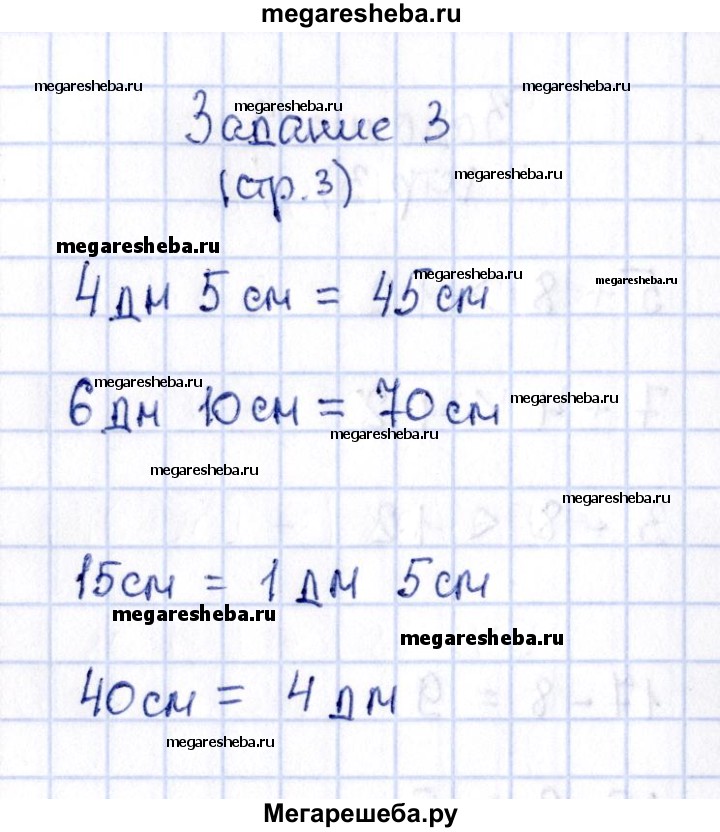 megaresheba.ru
megaresheba.ru megaresheba.ru
megaresheba.ru
Задание 3
megaresheba.ru
(стр. 3)
megaresheba.ru
megaresheba.ru megaresheba.ru
4 дм 5 см = 45 см
megaresheba.ru megaresheba.ru
6 дм 10 см = 70 см
megaresheba.ru
megaresheba.ru
megaresheba.ru
15 см = 1 дм 5 см
megaresheba.ru
megaresheba.ru
40 см = 4 дм
megaresheba.ru
Мегарешеба.ру